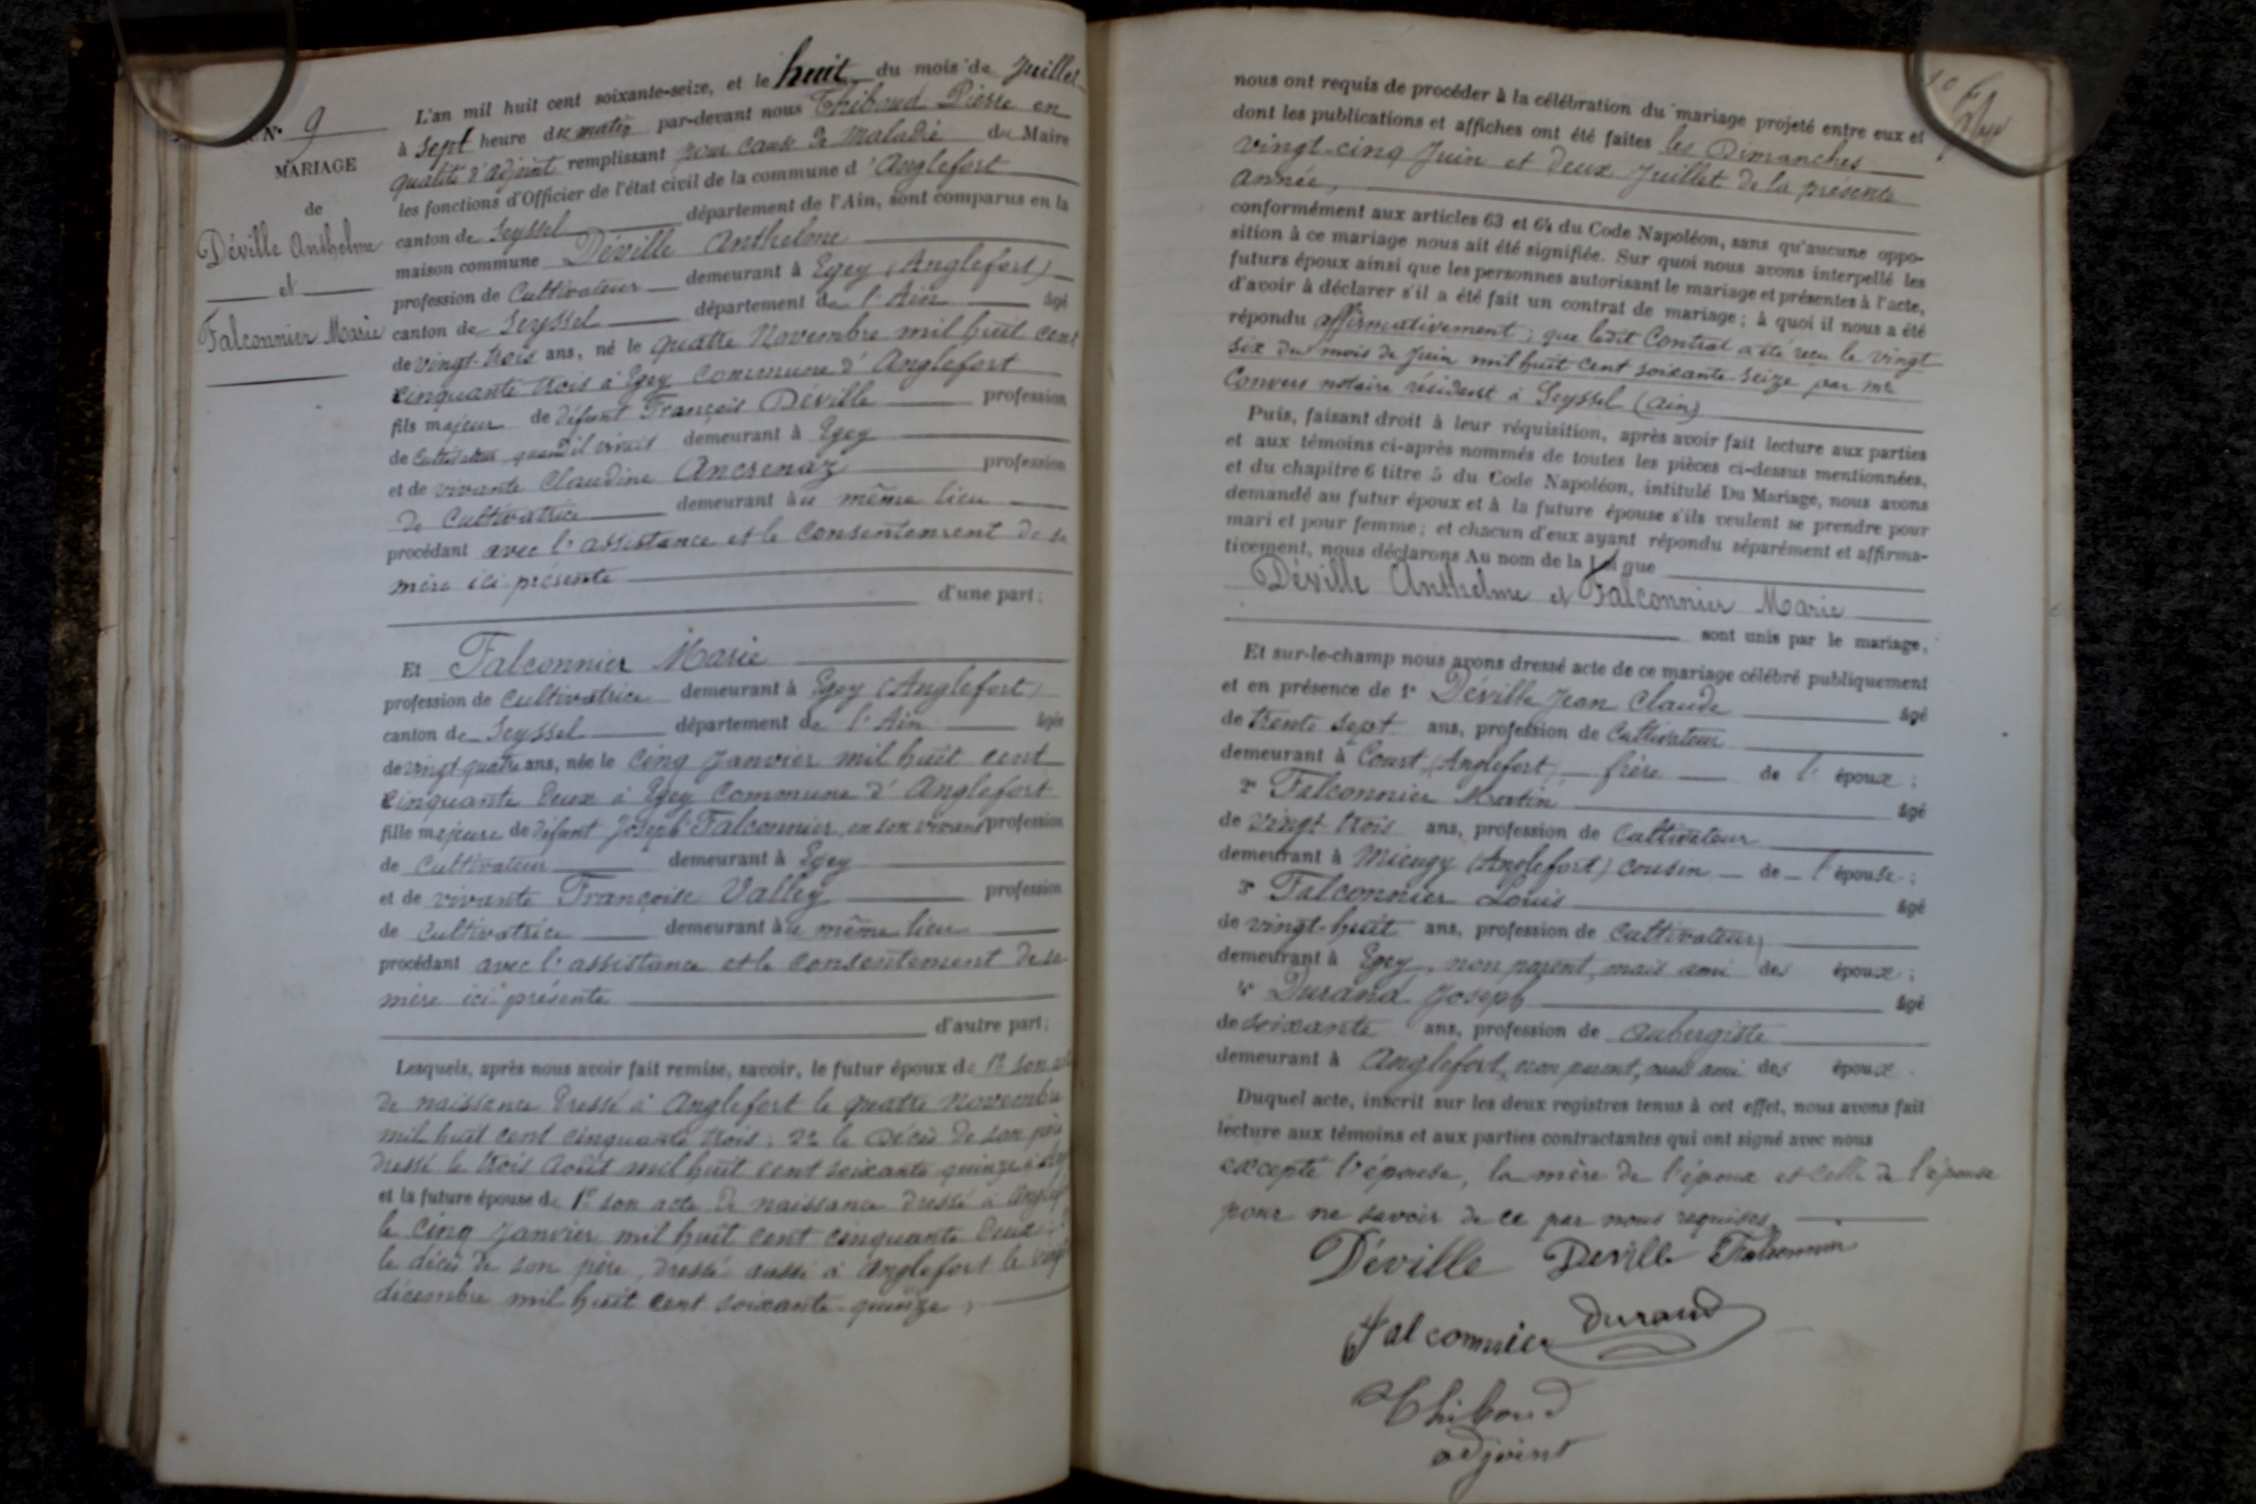 N° 9
MARIAGE
de
Déville Anthelme
et
Falconnier Marie
L'an mil huit cent soixante-seize, et le huit du mois de Juillet
à sept heure du matin par-devant nous Thiboud Pierre en
qualité d'adjoint remplissant pour cause de maladie du Maire
les fonctions d'Officier de l'état civil de la commune d'Anglefort
canton de Seyssel département de l'Ain, sont comparus en la
maison commune Déville Anthelme
profession de Cultivateur demeurant à Egey (Anglefort)
canton de Seyssel département de l'Ain âgé
de vingt-trois ans, né le quatre Novembre mil huit cent
cinquante trois à Egey Commune d'Anglefort
fils majeur de défunt François Déville profession
de Cultivateur quand il vivait demeurant à Egey
et de vivante Claudine Ancrenaz profession
de Cultivatrice demeurant au même lieu
procédant avec l'assistance et le consentement de sa
mère ici présente
d'une part;
Et Falconnier Marie
profession de Cultivatrice demeurant à Egey (Anglefort)
canton de Seyssel département de l'Ain âgée
de vingt quatre ans, née le cinq Janvier mil huit cent
cinquante deux à Egey Commune d'Anglefort
fille majeure de défunt Joseph Falconnier en son vivant profession
de Cultivateur demeurant à Egey
et de vivante Françoise Valley profession
de Cultivatrice demeurant à même lieu
procédant avec l'assistance et le consentement de sa
mère ici présente
d'autre part;
Lesquels, après nous avoir fait remise, savoir, le futur époux de 1° son
de naissance dressé à Anglefort le quatre Novembre
mil huit cent cinquante trois; 2° le Décès de son père
dressé le trois Août mil huit cent soixante quinze
et la future épouse de 1° son acte de naissance dressé à
le cinq Janvier mil huit cent cinquante deux;
le décès de son père, dressé aussi à Anglefort le
décembre mil huit cent soixante-quinze,
nous ont requis de procéder à la célébration du mariage projeté entre eux et
dont les publications et affiches ont été faites les Dimanches
vingt-cinq Juin et deux Juillet de la présente
année,
conformément aux articles 63 et 64 du Code Napoléon, sans qu'aucune oppo-
sition à ce mariage nous ait été signifiée. Sur quoi nous avons interpellé les
futurs époux ainsi que les personnes autorisant le mariage et présentes à l'acte,
d'avoir à déclarer s'il a été fait un contrat de mariage; à quoi il nous a été
répondu affirmativement; que ledit Contrat a été reçu le vingt
six du mois de Juin mil huit cent soixante-seize par me
Convers notaire résident à Seyssel (Ain)
Puis, faisant droit à leur réquisition, après avoir fait lecture aux parties
et aux témoins ci-après nommés de toutes les pièces ci-dessus mentionnées,
et du chapitre 6 titre 5 du Code Napoléon, intitulé Du Mariage, nous avons
demandé au futur époux et à la future épouse s'ils veulent se prendre pour
mari et pour femme; et chacun d'eux ayant répondu séparément et affirma-
tivement, nous déclarons Au nom de la Loi que
Déville Anthelme et Falconnier Marie
sont unis par le mariage.
Et sur-le-champ nous avons dressé acte de ce mariage célébré publiquement
et en présence de 1° Déville Jean Claude âgé
de trente sept ans, profession de Cultivateur
demeurant à Court (Anglefort) frère de l'époux;
2° Falconnier Martin âgé
de vingt trois ans, profession de Cultivateur
demeurant à Mieugy (Anglefort) cousin de l'épouse;
3° Falconnier Louis âgé
de vingt-huit ans, profession de Cultivateur
demeurant à Egey, non parent, mais ami des époux;
4° Durand Joseph âgé
de soixante ans, profession de Aubergiste
demeurant à Anglefort, non parent, mais ami des époux.
Duquel acte, inscrit sur les deux registres tenus à cet effet, nous avons fait
lecture aux témoins et aux parties contractantes qui ont signé avec nous
excepté l'épouse, la mère de l'époux et celle de l'épouse
pour ne savoir de ce par nous requises.
Déville Deville Falconnier
Falconnier Durand
Thiboud
adjoint